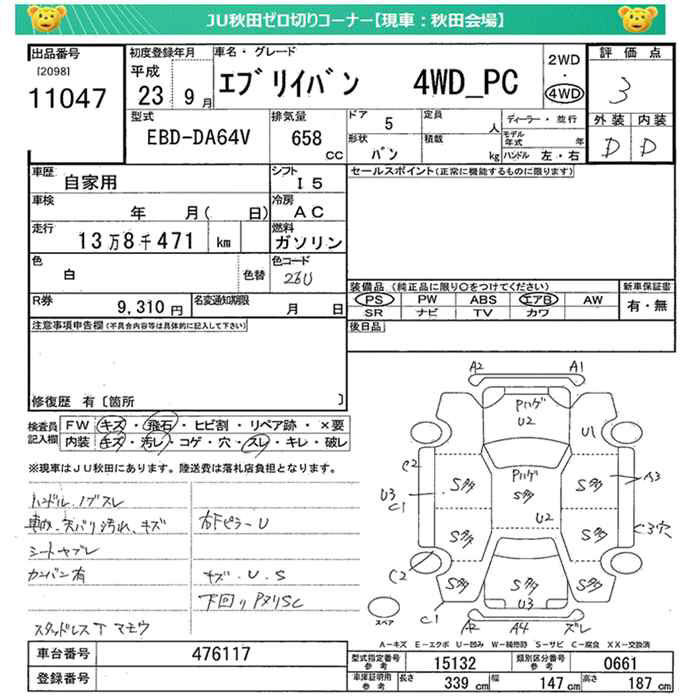 JU秋田ゼロ切りコーナー【現車：秋田会場】
出品番号
[2098]
11047
初度登録年月
平成
23年9月
車名・グレード
エブリイバン 4WD_PC
2WD
・
4WD
評価点
3
外装 内装
D D
型式
EBD-DA64V
排気量
658
CC
ドア
5
形状
バン
定員
人
積載
kg
ディーラー・並行
モデル
年式 年
ハンドル 左・右
車歴
自家用
シフト
I5
車検
年 月( 日)
冷房
AC
走行
13万8千471 km
燃料
ガソリン
色
白
色替
色コード
26U
R券
9,310円
名変通知期限
月 日
セールスポイント(正常に機能するものに限ります)
装備品 (純正品に限り○をつけてください)
PS PW ABS エアB AW
SR ナビ TV カワ
新車保証書
有・無
後日品
注意事項申告欄(不具合内容等は具体的に記入して下さい)
修復歴 有〔箇所 〕
検査員
記入欄
FW キズ・飛石・ヒビ割・リペア跡・×要
内装 キズ・汚レ・コゲ・穴・スレ・キレ・破レ
※現車はJU秋田にあります。陸送費は落札店負担となります。
ハンドル、ノブスレ
車内、天バリ汚れ、キズ
シートヤブレ
カンバン有
スタッドレスT マモウ
右Fピラー U
キズ・U・S
下回りPヌリSC
A2 A1
Pハゲ
U2
U1
C2
U3
C1
Sタタ
Pハゲ
Sタタ
U2
Sタタ
A3
Sタタ
Sタタ
C3穴
C2
Sタタ
Sタタ
U3
Sタタ
C1
A2 A4 ズレ
スペア
A－キズ E－エクボ U－凹み W－補修跡 S－サビ C－腐食 XX－交換済
車台番号
476117
登録番号
型式指定番号
参考
15132
類別区分番号
参考
0661
車庫証明用
参考
長さ
339 cm
幅
147 cm
高さ
187 cm